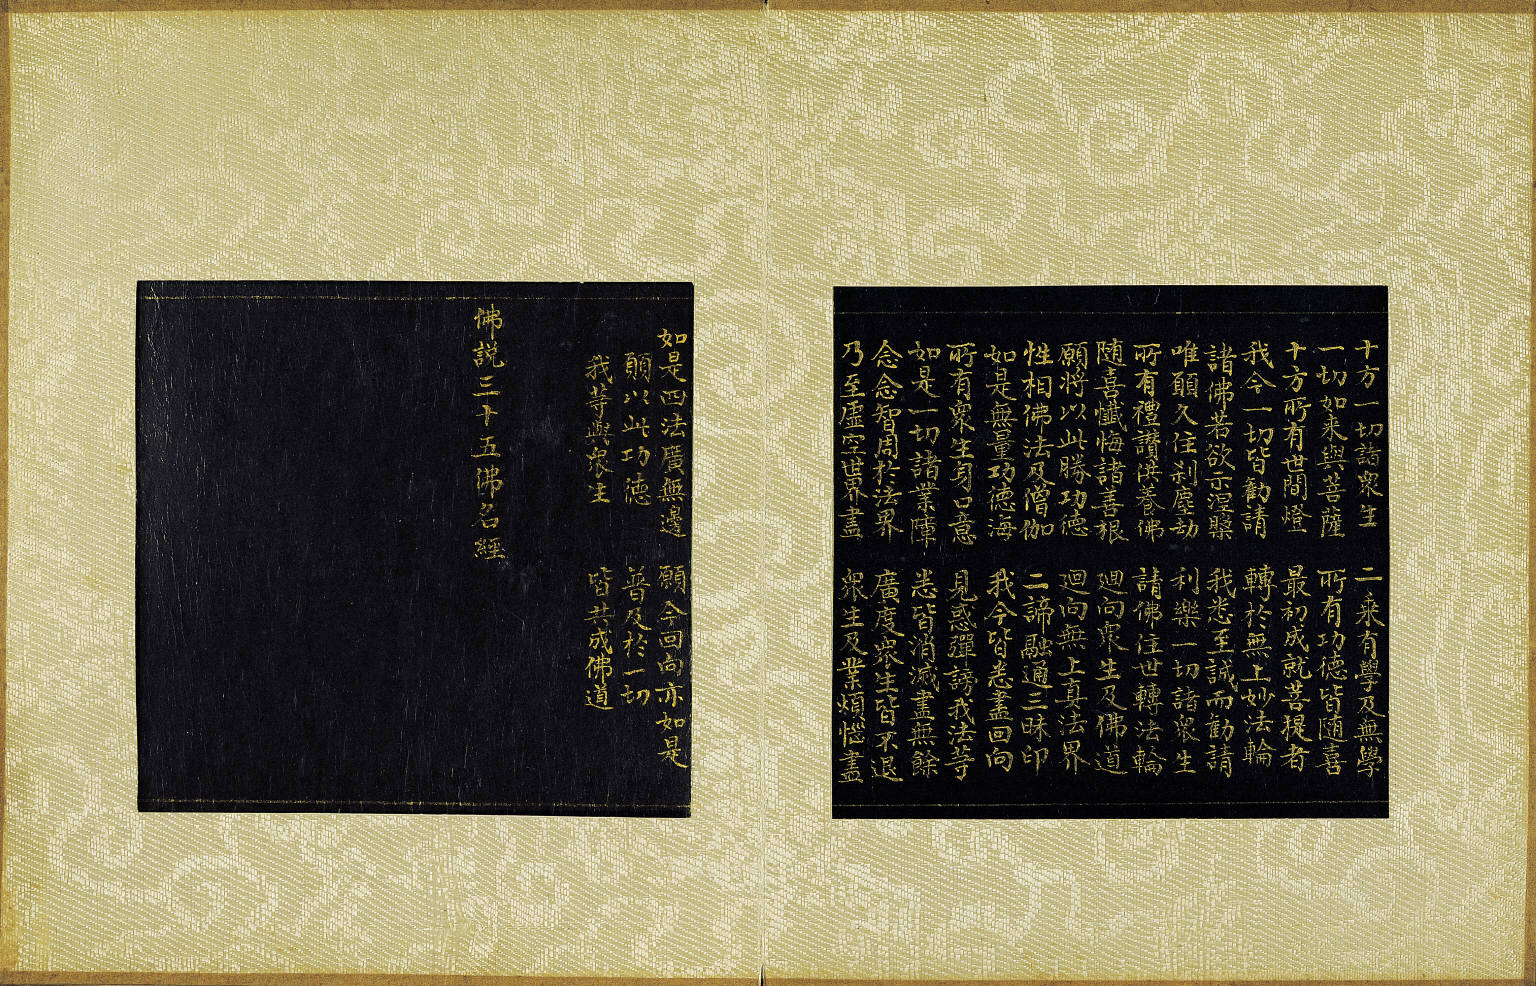 十方一切諸衆生　二乘有學及無學
一切如来與菩薩　所有功德皆随喜
十方所有世間燈　最初成就菩提者
我今一切皆勸請　轉於無上妙法輪
諸佛若欲示涅槃　我悉至誠而勸請
唯願久住刹塵劫　利樂一切諸衆生
所有禮讚供養佛　請佛住世轉法輪
随喜懺悔諸善根　廻向衆生及佛道
願將以此勝功德　廻向無上真法界
性相佛法及僧伽　二諦融通三昧印
如是無量功德海　我今皆悉盡回向
所有衆生身口意　見惑彈謗我法等
如是一切諸業障　悉皆消滅盡無餘
念念智周於法界　廣度衆生皆不退
乃至虛空世界盡　衆生及業煩惱盡
如是四法廣無邊　願今回向亦如是
願以此功德　普及於一切
我等與衆生　皆共成佛道
佛説三十五佛名經